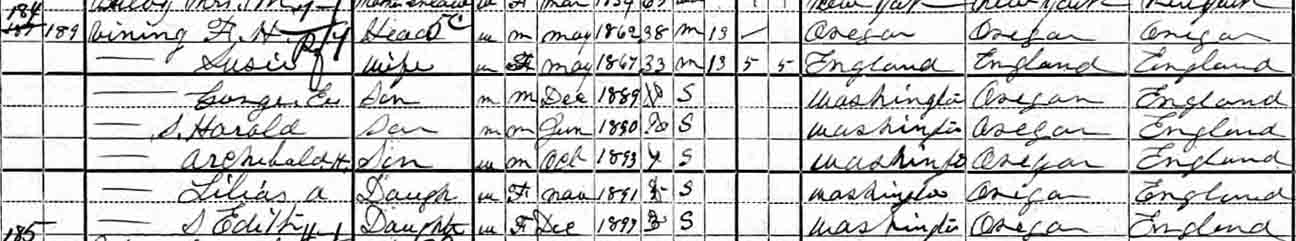 184 Mrs. Mar 1834 New York New York
189 Vining F. H. Head W M May 1862 38 M 13 Oregon Oregon Oregon
Susie Wife W F May 1867 33 M 13 5 5 England England England
George E. Son M Dec 1889 S Washington Oregon England
S. Harold Son M Jun 1890 S Washington Oregon England
Archibald H. Son W M Oct 1893 S Washington Oregon England
Lilias A Daugh W F 1891 S Washington Oregon England
185 S Edith Daught W F Dec S Washington Oregon England